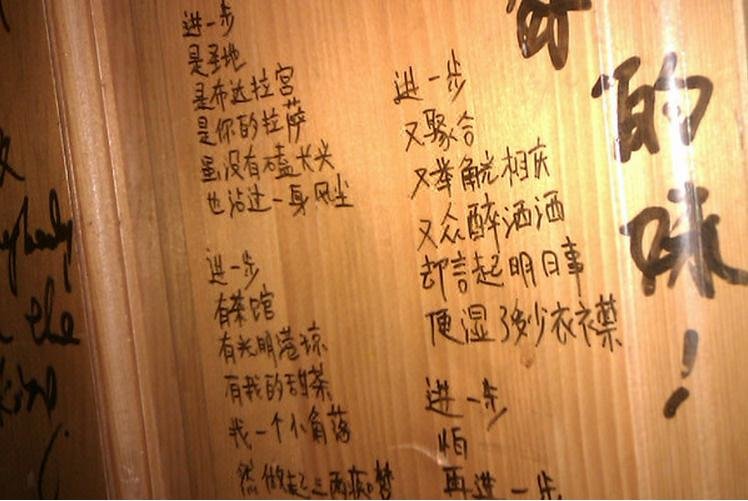 进一步
是圣地
是布达拉宫
是你的拉萨
虽没有磕长头
也沾过一身风尘
进一步
有茶馆
有光明港琼
有我的甜茶
找一个小角落
然做起三两痴梦
进一步
又聚合
又举觥相庆
又众醉洒洒
却言起明日事
便湿了纱衣衣襟
进一步
怕
再进一步
的
味!
the